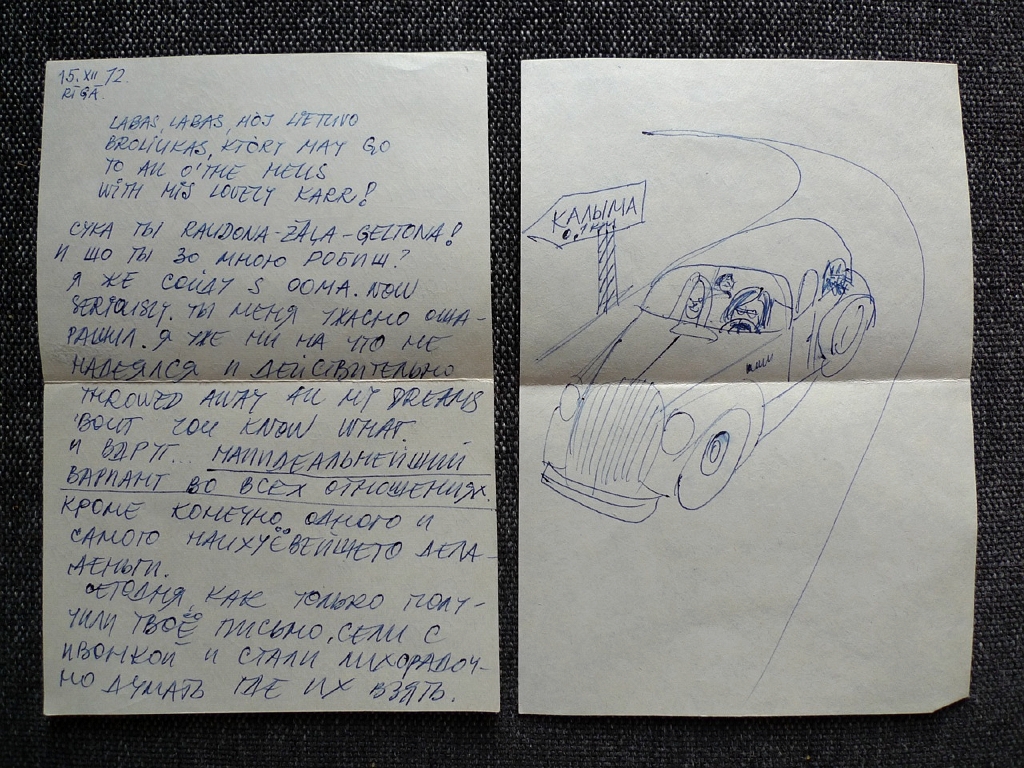 15.XII 72.
RĪGĀ.
LABAS, LABAS, MÓJ LIETUVO
BROLIUKAS, KTÓRY MAY GO
TO ALL O'THE HELLS
WITH HIS LOVELY KARR!
СУКА ТЫ RAUDONA-ŽALA-GELTONA!
И ЩО ТЫ ЗО МНОЮ РОБИШ?
Я ЖЕ СОЙДУ S ООМА. NOW
SERIOUSLY. ТЫ МЕНЯ УЖАСНО ОША-
РАШИЛ. Я УЖЕ НИ НА ЧТО НЕ
НАДЕЯЛСЯ И ДЕЙСТВИТЕЛЬНО
THROWED AWAY ALL MY DREAMS
'BOUT YOU KNOW WHAT.
И ВДРУГ... НАИИДЕАЛЬНЕЙШИЙ
ВАРИАНТ ВО ВСЕХ ОТНОШЕНИЯХ.
КРОМЕ КОНЕЧНО ОДНОГО И
САМОГО НАИХУЁВЕЙШЕГО ДЕЛА-
ДЕНЬГИ.
СЕГОДНЯ, КАК ТОЛЬКО ПОЛУ-
ЧИЛИ ТВОЁ ПИСЬМО, СЕЛИ С
ИВОНКОЙ И СТАЛИ ЛИХОРАДОЧ-
НО ДУМАТЬ ГДЕ ИХ ВЗЯТЬ.
КАЛЫМА